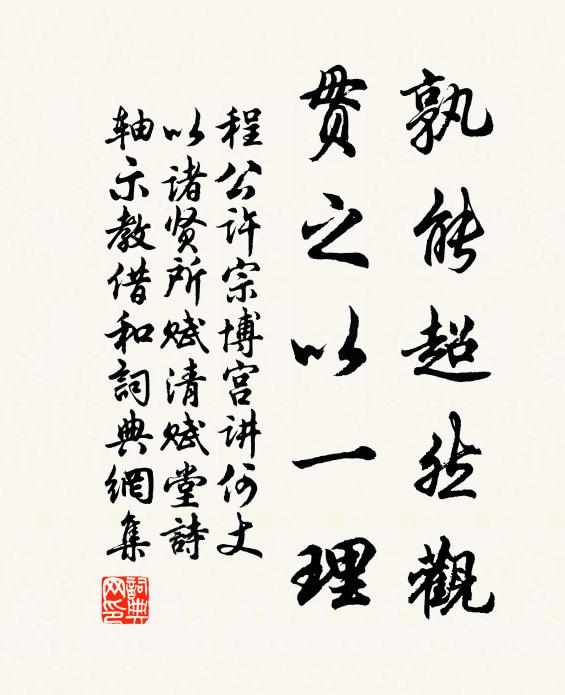 孰能超然觀
貫之以一理
程公许宗博宫讲何丈
以诸贤所赋清赋堂詩
轴示教借和詞典網集
詞典網印